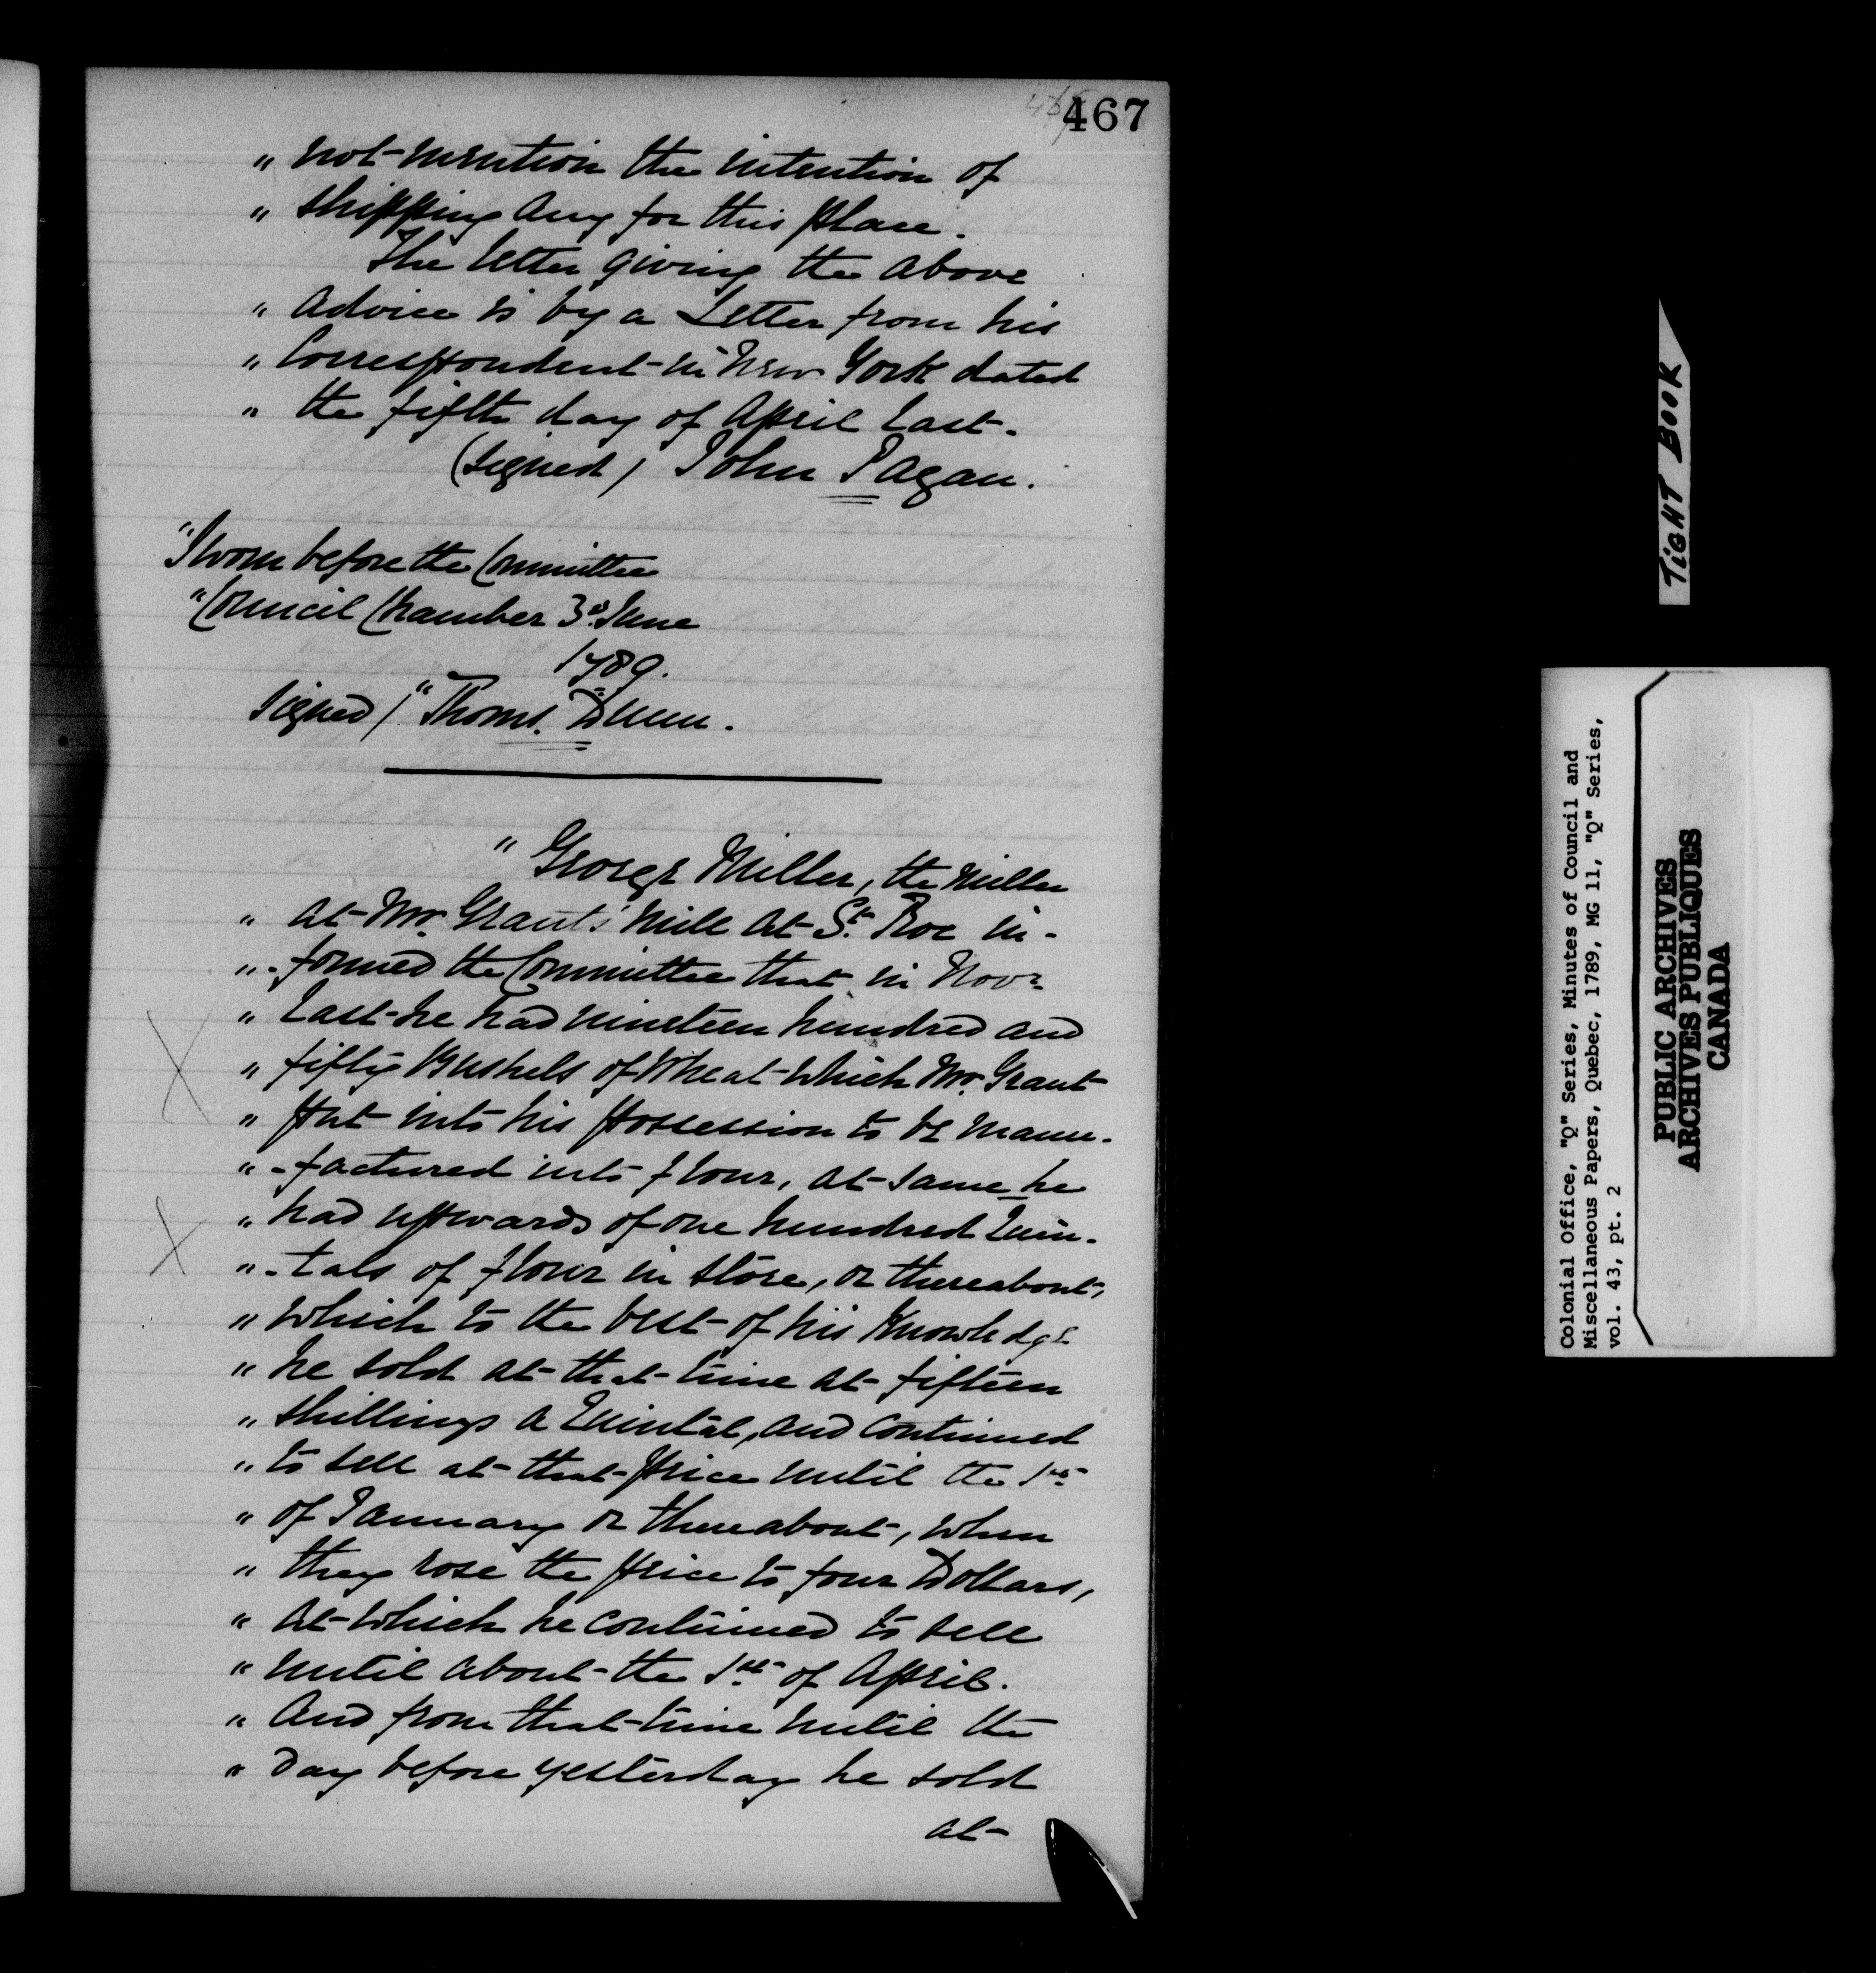 467
" not mention the intention of
" shipping any for this place.
The letter giving the above
" advice is by a Letter from his
" Correspondent in New York dated
" the fifth day of April last.
(signed) John Pagan.
"Sworn before the Committee
"Council Chamber 3d. June
1789.
signed) "Thoms. Dunn.
" George Miller, the Miller
" at Mr. Grants' Mill at St. Roc in-
" -formed the Committee that in Novr.
" last he had nineteen hundred and
" fifty Bushels of Wheat which Mr. Grant
" put into his possession to be manu-
" -factured into flour, at same he
" had upwards of one hundred Quin-
" -tals of flour in store, or thereabout,
" which to the best of his Knowledge
" he sold at that time at fifteen
" shillings a Quintal, and continued
" to sell at that price until the 1st.
" of January or thereabout, when
" they rose the price to four Dollars,
" at which he continued to sell
" until about the 1st. of April.
" And from that time until the
" day before yesterday he sold
at
TIGHT BOOK
Colonial Office, "Q" Series, Minutes of Council and
Miscellaneous Papers, Quebec, 1789, MG 11, "Q" Series,
vol. 43, pt. 2
PUBLIC ARCHIVES
ARCHIVES PUBLIQUES
CANADA